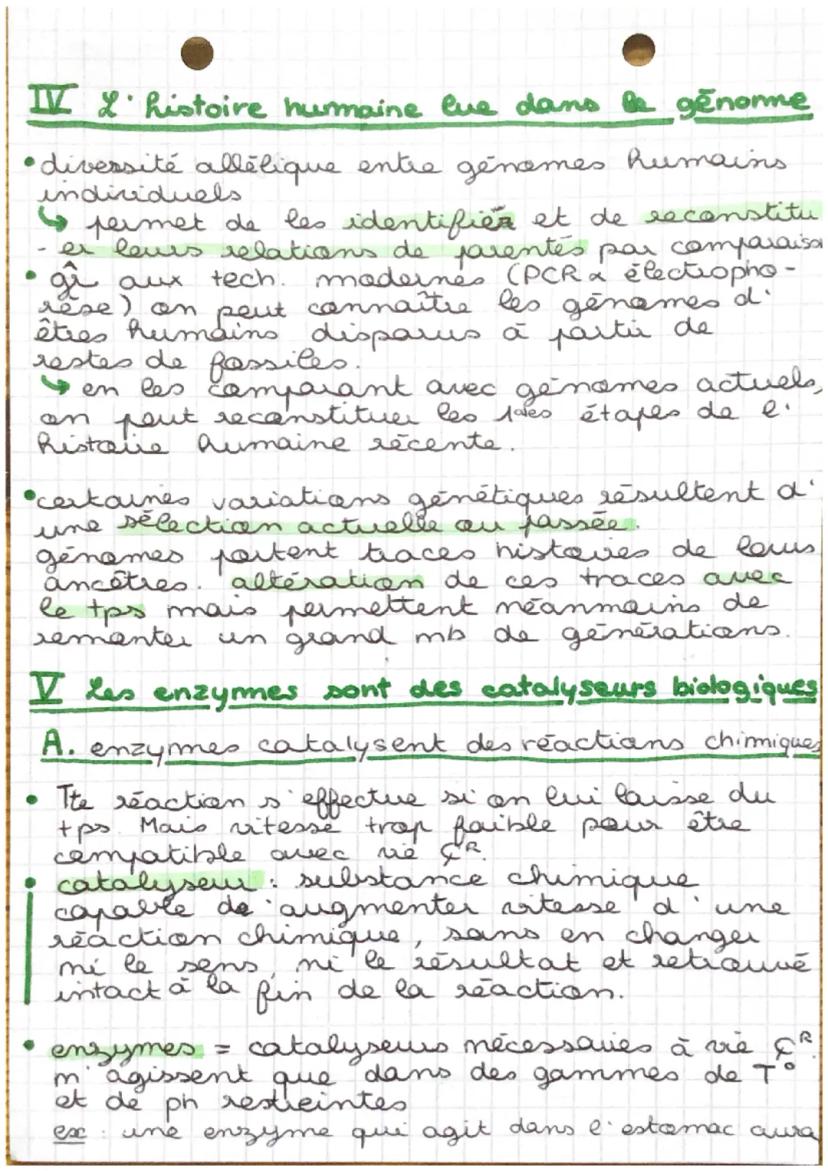 IV L'histoire humaine lue dans le génome
• diversité allélique entre génomes humains
individuels
↳ permet de les identifier et de reconstitu
- er leurs relations de parentés par comparaiso
• gr aux tech. modernes (PCR & électropho-
rèse) on peut connaître les génomes d'
êtres humains disparus à partir de
restes de fossiles.
↳ en les comparant avec génomes actuels,
on peut reconstituer les 1ères étapes de l'
histoire humaine récente.
• certaines variations génétiques résultent d'
une sélection actuelle ou passée.
génomes portent traces histoires de leurs
ancêtres. altération de ces traces avec
le tps mais permettent néanmoins de
remonter un grand nb de générations.
V Les enzymes sont des catalyseurs biologiques
A. enzymes catalysent des réactions chimiques
• Tte réaction s'effectue si on lui laisse du
tps. Mais vitesse trop faible pour être
compatible avec vie çR.
• catalyseur : substance chimique
capable de augmenter vitesse d'une
réaction chimique, sans en changer
ni le sens, ni le résultat et retrouvé
intact à la fin de la réaction.
• enzymes = catalyseurs nécessaires à vie çR
n'agissent que dans des gammes de T°
et de ph restreintes
ex : une enzyme qui agit dans l'estomac aura